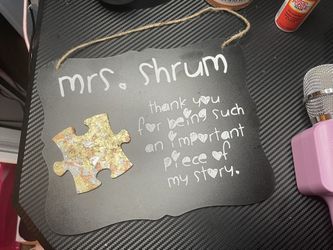 mrs. shrum
thank you
for being such
an important
piece of
my story.